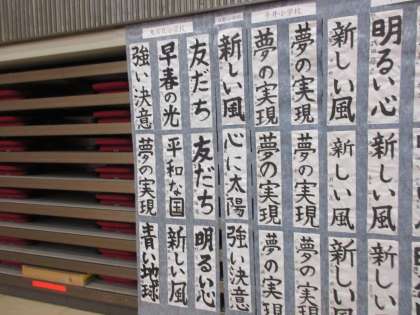 強い決意
早春の光
友だち
新しい風
夢の実現
夢の実現
新しい風
明るい心
夢の実現
平和な国
友だち
心に太陽
夢の実現
夢の実現
新しい風
新しい風
青い地球
新しい風
明るい心
強い決意
夢の実現
夢の実現
新しい風
新しい